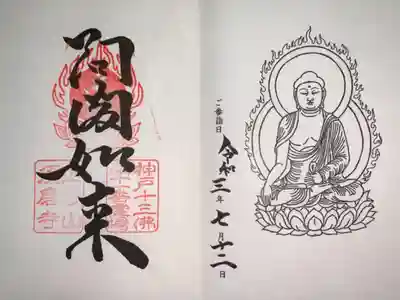 ご参詣日
令和三年七月十二日
阿閦如来
神戸十三佛
十一番霊場